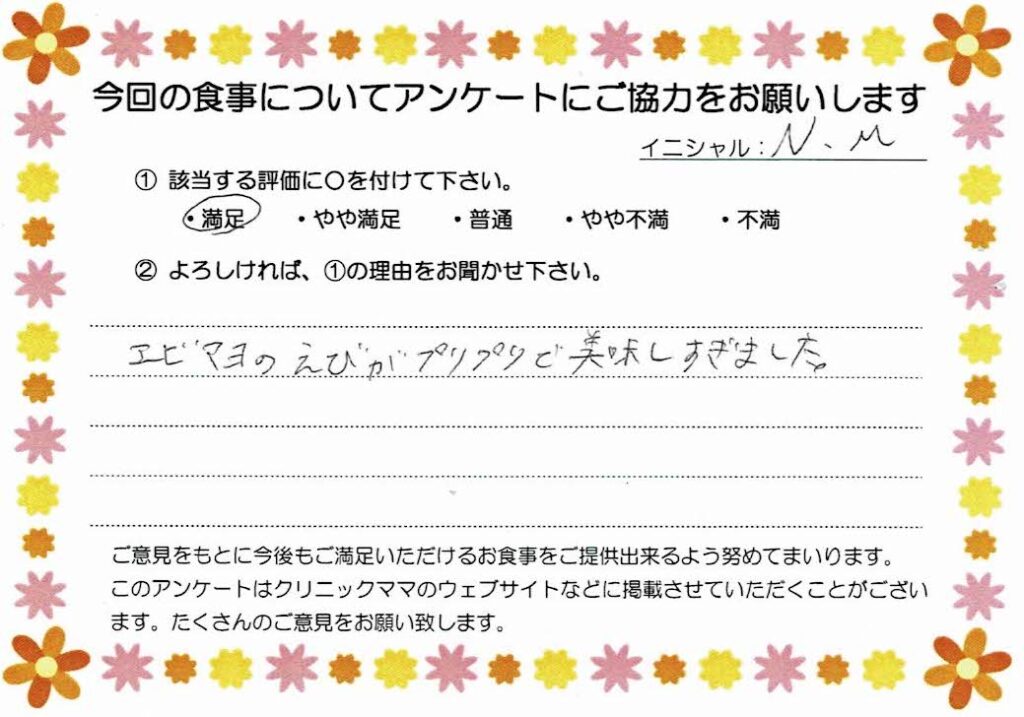 今回の食事についてアンケートにご協力をお願いします
イニシャル：N、M
① 該当する評価に〇を付けて下さい。
・満足 ・やや満足 ・普通 ・やや不満 ・不満
② よろしければ、①の理由をお聞かせ下さい。
エビマヨのえびがプリプリで美味しすぎました。
ご意見をもとに今後もご満足いただけるお食事をご提供出来るよう努めてまいります。
このアンケートはクリニックママのウェブサイトなどに掲載させていただくことがござい
ます。たくさんのご意見をお願い致します。